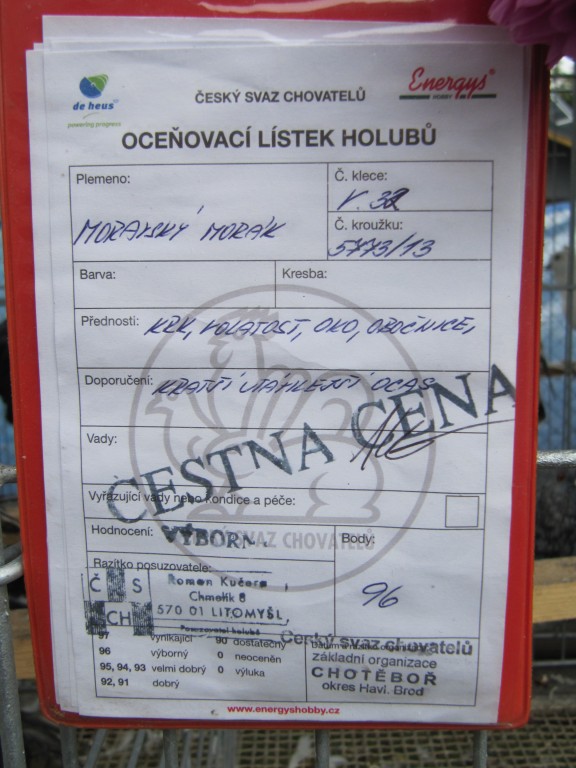 de heus
powering progress
ČESKÝ SVAZ CHOVATELŮ
Energys®
HOBBY
OCEŇOVACÍ LÍSTEK HOLUBŮ
Plemeno:
MORAVSKÝ MORÁK
Č. klece:
V. 32
Č. kroužku:
5773/13
Barva:
Kresba:
Přednosti: KRK, VOLATOST, OKO, OBOČNICE,
Doporučení: KRATŠÍ OCAS
Vady:
ČESTNÁ CENA
Vyřazující vady nebo kondice a péče:
Hodnocení: VÝBORN
SVAZ CHOVATELŮ
Body:
96
Razítko posuzovatele:
Č S
CH
Roman Kučera
Chmelík 8
570 01 LITOMYŠL
Posuzovatel holubů
97 vynikající 90 dostatečný
96 výborný 0 neoceněn
95, 94, 93 velmi dobrý 0 výluka
92, 91 dobrý
Český svaz chovatelů
základní organizace
CHOTĚBOŘ
okres Havl. Brod
www.energyshobby.cz